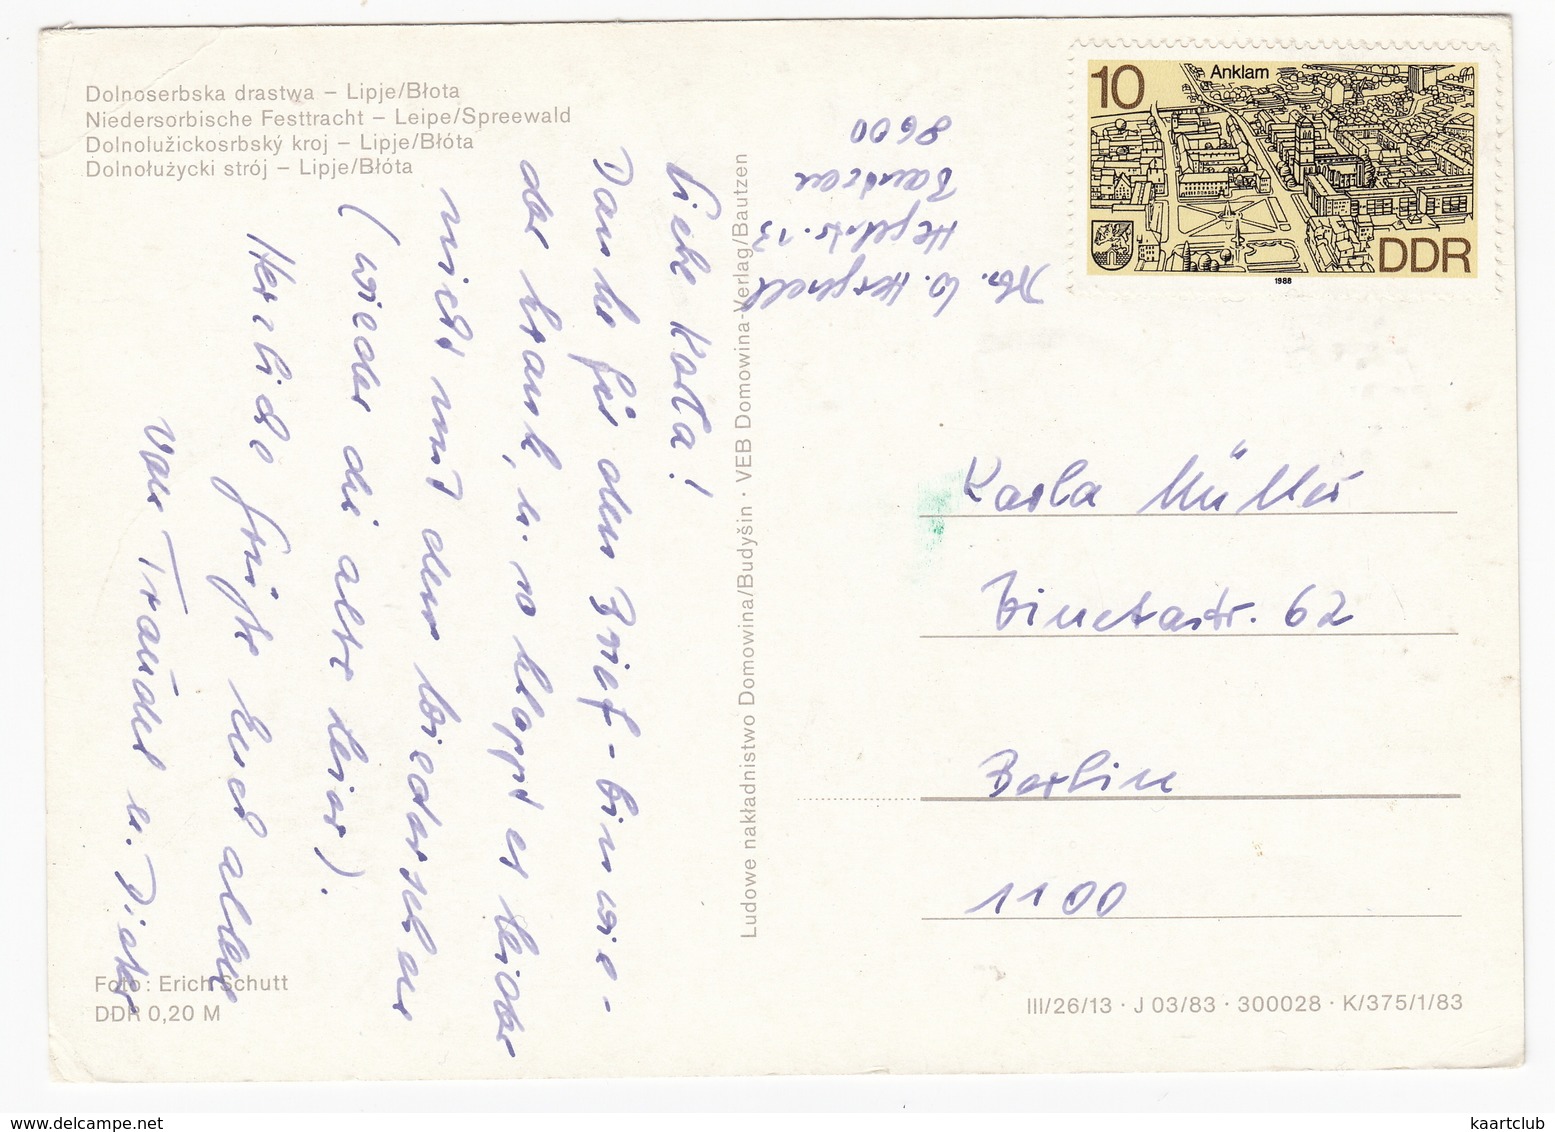 Dolnoserbska drastwa – Lipje/Błota
Niedersorbische Festtracht – Leipe/Spreewald
Dolnolužickosrbský kroj – Lipje/Błóta
Dolnołużycki strój – Lipje/Błóta
10
Anklam
DDR
1988
8600
Bautzen
Hegelstr. 13
W.
Liebe Karla!
Danke für den Brief - bin wie-
der krank, u. so klappt es leider
nicht mit dem Wiedersehen
(wieder die alte Leier).
Herzliche Grüße Euch allen
von Traudel u. Dieter
Ludowe nakładnistwo Domowina/Budyšin · VEB Domowina-Verlag/Bautzen
Karla Müller
Binetastr. 62
Berlin
1100
Foto: Erich Schutt
DDR 0,20 M
III/26/13 · J 03/83 · 300028 · K/375/1/83
www.delcampe.net
kaartclub